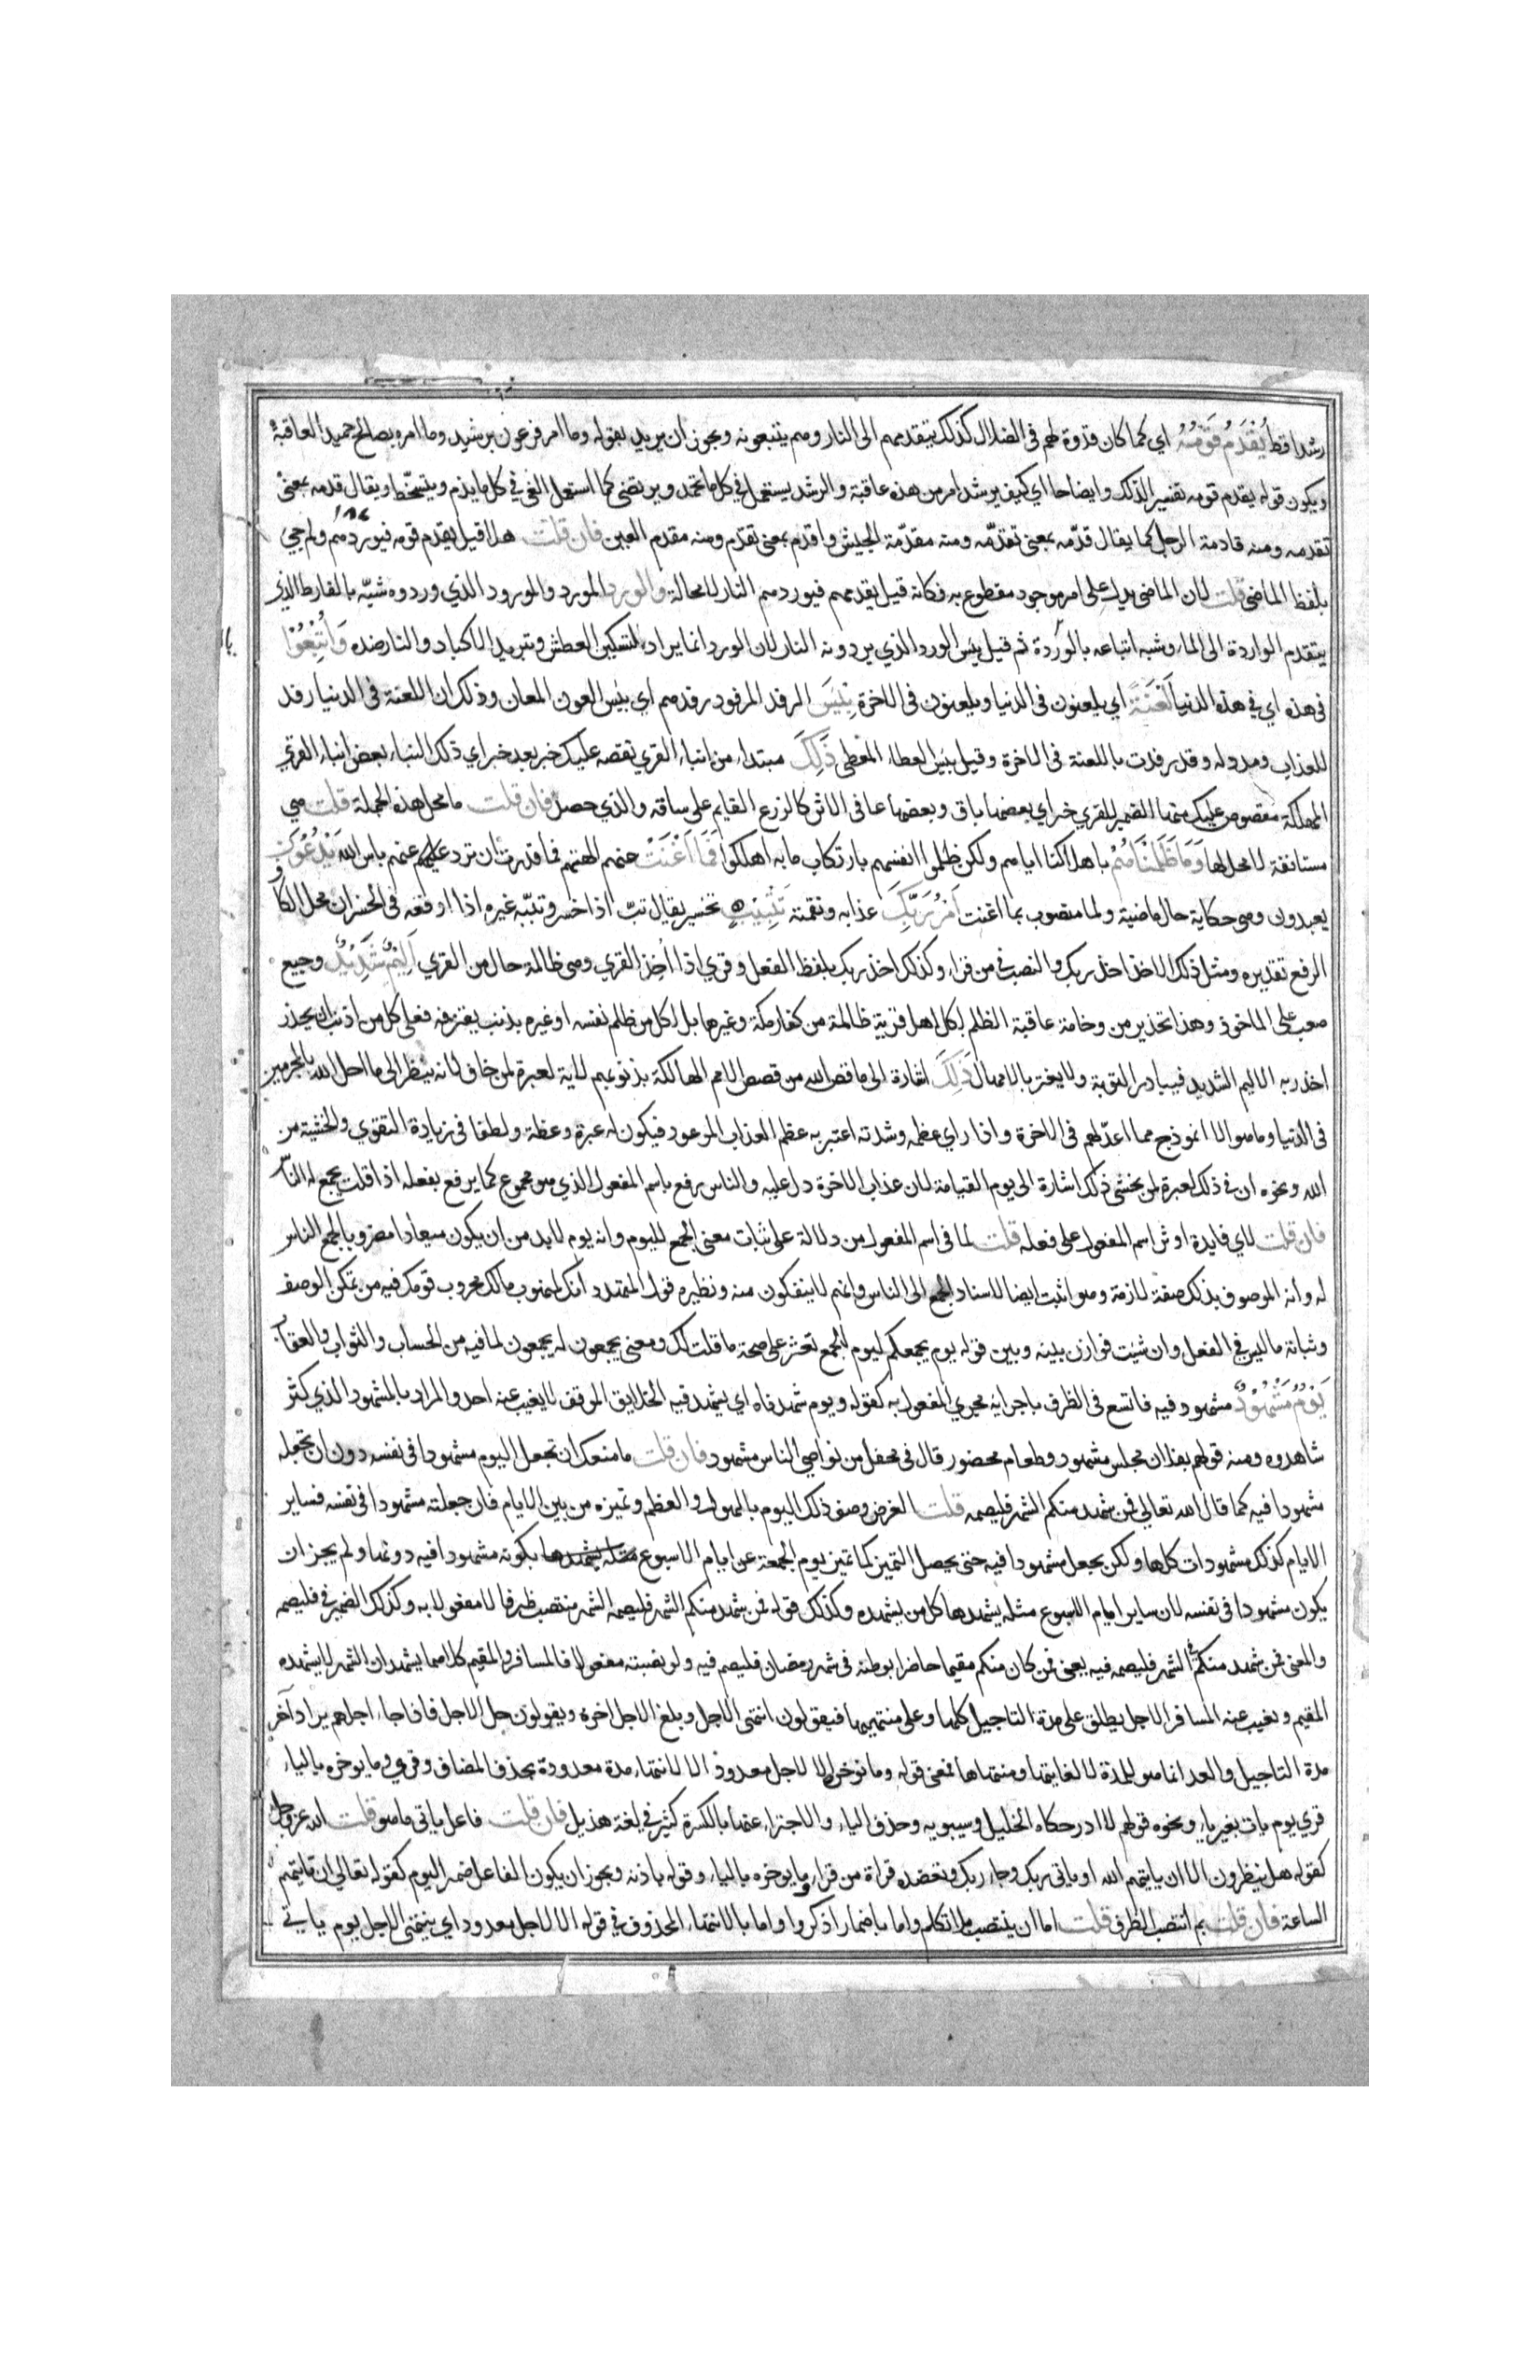 رشدا قط يَقْدُمُ قَوْمَهُ اي كما كان قدوة لهم في الضلال كذلك يتقدمهم الى النار وهم يتبعونه ويجوز ان يريد بقوله وما امر فرعون برشيد وما امره بصالح حميد العاقبة
ويكون قوله يقدم قومه تفسيرا لذلك وايضاحا اي كيف يرشد امر من هذه عاقبته والرشد يستعمل في كل ما يحمد ويرتضى كما استعمل الغي في كل ما يذم ويتسخط ويقال قدمه بمعنى
تقدمه ومنه قادمة الرحل كما يقال قدّمه بمعنى تقدّمه ومنه مقدّمة الجيش واقدم بمعنى تقدّم ومنه مقدم العين فان قلت هلا قيل يقدم قومه فيوردهم ولم جيئ
بلفظ الماضى قلت لان الماضى يدل على امر موجود مقطوع به فكانه قيل يقدمهم فيوردهم النار لا محالة والورد المورد والمورود الذي وردوه شبّه بالفارط الذي
يتقدم الواردة الى الماء وشبه اتباعه بالوردة ثم قيل بئس الورد الذي يردونه النار لان الورد انما يراد لتسكين العطش وتبريد الاكباد والنار ضده وَأُتْبِعُوا
في هذه اي في هذه الدنيا لَعْنَةً اي يلعنون في الدنيا ويلعنون في الاخرة بِئْسَ الرفد المرفود رفدهم اي بئس العون المعان وذلك ان اللعنة في الدنيا رفد
للعذاب ومدد له وقد رفدت باللعنة في الاخرة وقيل بئس العطاء المعطى ذَلِكَ مبتداء من انباء القري نقصه عليك خبر بعد خبر اي ذلك النباء بعض انباء القري
المهلكة مقصوص عليك منها الضمير للقري خبر اي بعضها باق وبعضها عافى الاثر كالزرع القايم على ساقه والذي حصد فان قلت ما محل هذه الجملة قلت هي
مستانفة لا محل لها وَمَا ظَلَمْنَاهُمْ باهلاكنا اياهم ولكن ظلموا انفسهم بارتكاب ما به اهلكوا فَمَا أَغْنَتْ عنهم الهتهم فما قدرت ان ترد عنهم باس الله يَدْعُونَ
يعبدون وهي حكاية حال ماضية ولما منصوب بما اغنت أَمْرُ رَبِّكَ عذابه ونقمته تَتْبِيبٍ تخسير يقال تبّ اذا خسر وتببه غيره اذا اوقعه في الخسران محل الكاف
الرفع تقديره ومثل ذلك الاخذ اخذ ربك والنصب في من قراء وكذلك اخذ ربك بلفظ الفعل وقري اذا أخذ القري وهي ظالمة حال من القري أَلِيمٌ شَدِيدٌ وجيع
صعب على الماخوذ وهذا تحذير من وخامة عاقبة الظلم لكل اهل قرية ظالمة من كفار مكة وغيرها بل لكل من ظلم نفسه او غيره بذنب يقترفه فعلى كل من اذنب ان يحذر
اخذ ربه الاليم الشديد فيبادر التوبة ولا يغتر بالامهال ذَلِكَ اشارة الى ما قص الله من قصص الامم الهالكة بذنوبهم لاية لعبرة لمن خاف لانه ينظر الى ما احل الله بالمجرمين
في الدنيا وما هو الا انموذج مما اعدّ لهم في الاخرة واذا راي عظمه وشدته اعتبر به عظم العذاب الموعود فيكون له عبرة وعظة ولطفا في زيادة التقوي والخشية من
الله ونحوه ان في ذلك لعبرة لمن يخشى ذلك اشارة الى يوم القيامة لان عذاب الاخرة دل عليه والناس رفع باسم المفعول الذي هو مجموع كما يرفع بفعله اذا قلت يجمع له الناس
فان قلت لاي فايدة اوثر اسم المفعول على فعله قلت لما في اسم المفعول من دلالة على ثبات معنى الجمع لليوم وانه يوم لابد من ان يكون ميعادا مضروبا لجمع الناس
له وأنه الموصوف بذلك صفة لازمة وهو اثبت ايضا لاسناد الجمع الى الناس وانهم لا ينفكون منه ونظيره قول المتهدد انك لمنهوب مالك محروب قومك فيه من تمكن الوصف
وثباته ما ليس في الفعل وان شئت فوازن بينه وبين قوله يوم يجمعكم ليوم الجمع تعثر على صحة ما قلت لك ومعنى يجمعون له يجمعون لما فيه من الحساب والثواب والعقاب
يَوْمٌ مَشْهُودٌ مشهود فيه فاتسع في الظرف باجرائه مجري المفعول به كقوله ويوم شهدناه اي يشهد فيه الخلايق الموقف لا يغيب عنه احد والمراد بالمشهود الذي كثر
شاهدوه ومنه قولهم لفلان مجلس مشهود وطعام محضور قال في محفل من نواصي الناس مشهود فان قلت ما منعك ان تجعل اليوم مشهودا في نفسه دون ان تجعله
مشهودا فيه كما قال الله تعالى فمن شهد منكم الشهر فليصمه قلت الغرض وصف ذلك اليوم بالهول والعظم وتميزه من بين الايام فان جعلته مشهودا في نفسه فساير
الايام كذلك مشهودات كلها ولكن يجعل مشهودا فيه حتى يحصل التميز كما تميز يوم الجمعة عن ايام الاسبوع بكونه مشهودا فيه دونها ولم يجز ان
يكون مشهودا في نفسه لان ساير ايام الاسبوع مثله يشهدها كل من يشهده وكذلك قوله فمن شهد منكم الشهر فليصمه الشهر منتصب ظرفا لا مفعولا به وكذلك الضمير في فليصمه
والمعنى فمن شهد منكم في الشهر فليصمه فيه يعنى فمن كان منكم مقيما حاضرا بوطنه في شهر رمضان فليصم فيه ولو نصبته مفعولا فالمسافر والمقيم كلاهما يشهدان الشهر لا يشهده
المقيم ويغيب عنه المسافر الاجل يطلق على مدة التاجيل كلها وعلى منتهيها فيقولون انتهى الاجل وبلغ الاجل اخره ويقولون حل الاجل فاذا جاء اجلهم يراد آخر
مدة التاجيل والعد انما هو للمدة لا لغايتها ومنتهاها فمعنى قوله وما نوخره الا لاجل معدود الا لانتهاء مدة معدودة بحذف المضاف وقري وما يوخره بالياء
قري يوم يات بغير ياء ونحوه قولهم لا ادر حكاه الخليل وسيبويه وحذف الياء والاجتزاء عنها بالكسرة كثير في لغة هذيل فان قلت فاعل ياتى ما هو قلت الله عز وجل
كقوله هل ينظرون الا ان ياتيهم الله او ياتى ربك وجاء ربك وتعضده قراة من قراء وما يوخره بالياء وقوله باذنه ويجوز ان يكون الفاعل ضمير اليوم كقوله تعالى ان تاتيهم
الساعة فان قلت بم انتصب الظرف قلت اما ان ينتصب بلا تكلم واما باضمار اذكروا واما بالانتهاء المحذوف في قوله الا لاجل معدود اي ينتهى الاجل يوم ياتي